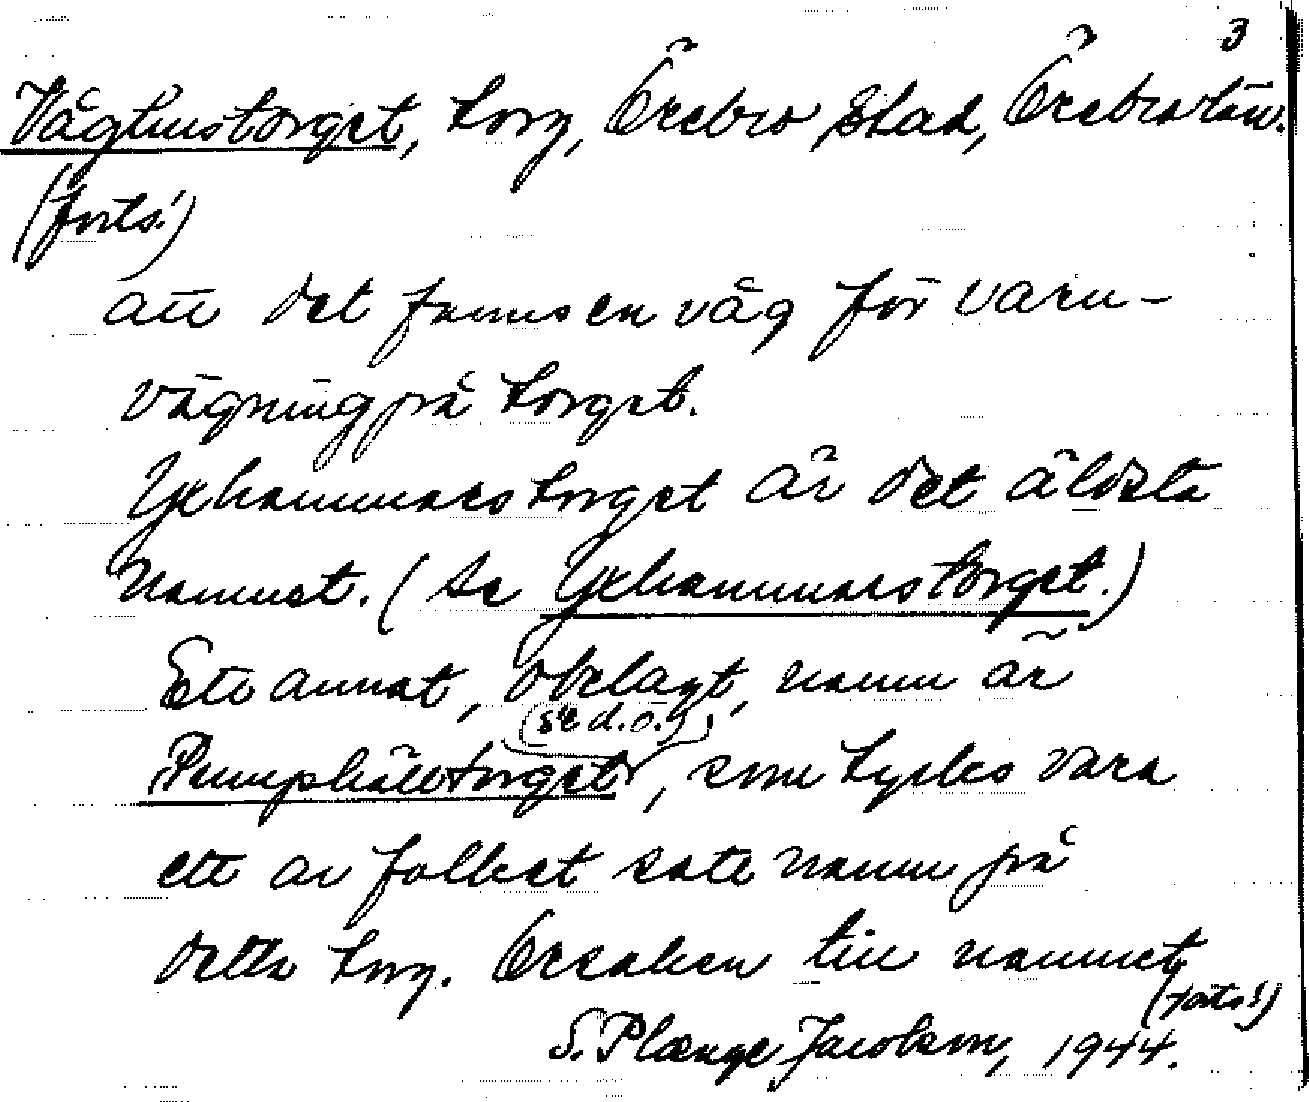 3
Våghustorget, torg, Örebro stad, Örebro län.
(forts.)
att det fanns en våg för varu-
vägning på torget.
Gehammarstorget är det äldsta
namnet. (Se Gehammarstorget.)
Ett annat, obelagt, namn är
(se d. o.)
Pumphålltorget, som tycks vara
ett av folket satt namn på
detta torg. Orsaken till namnet
(forts!)
S. Plænge Jacobson, 1944.